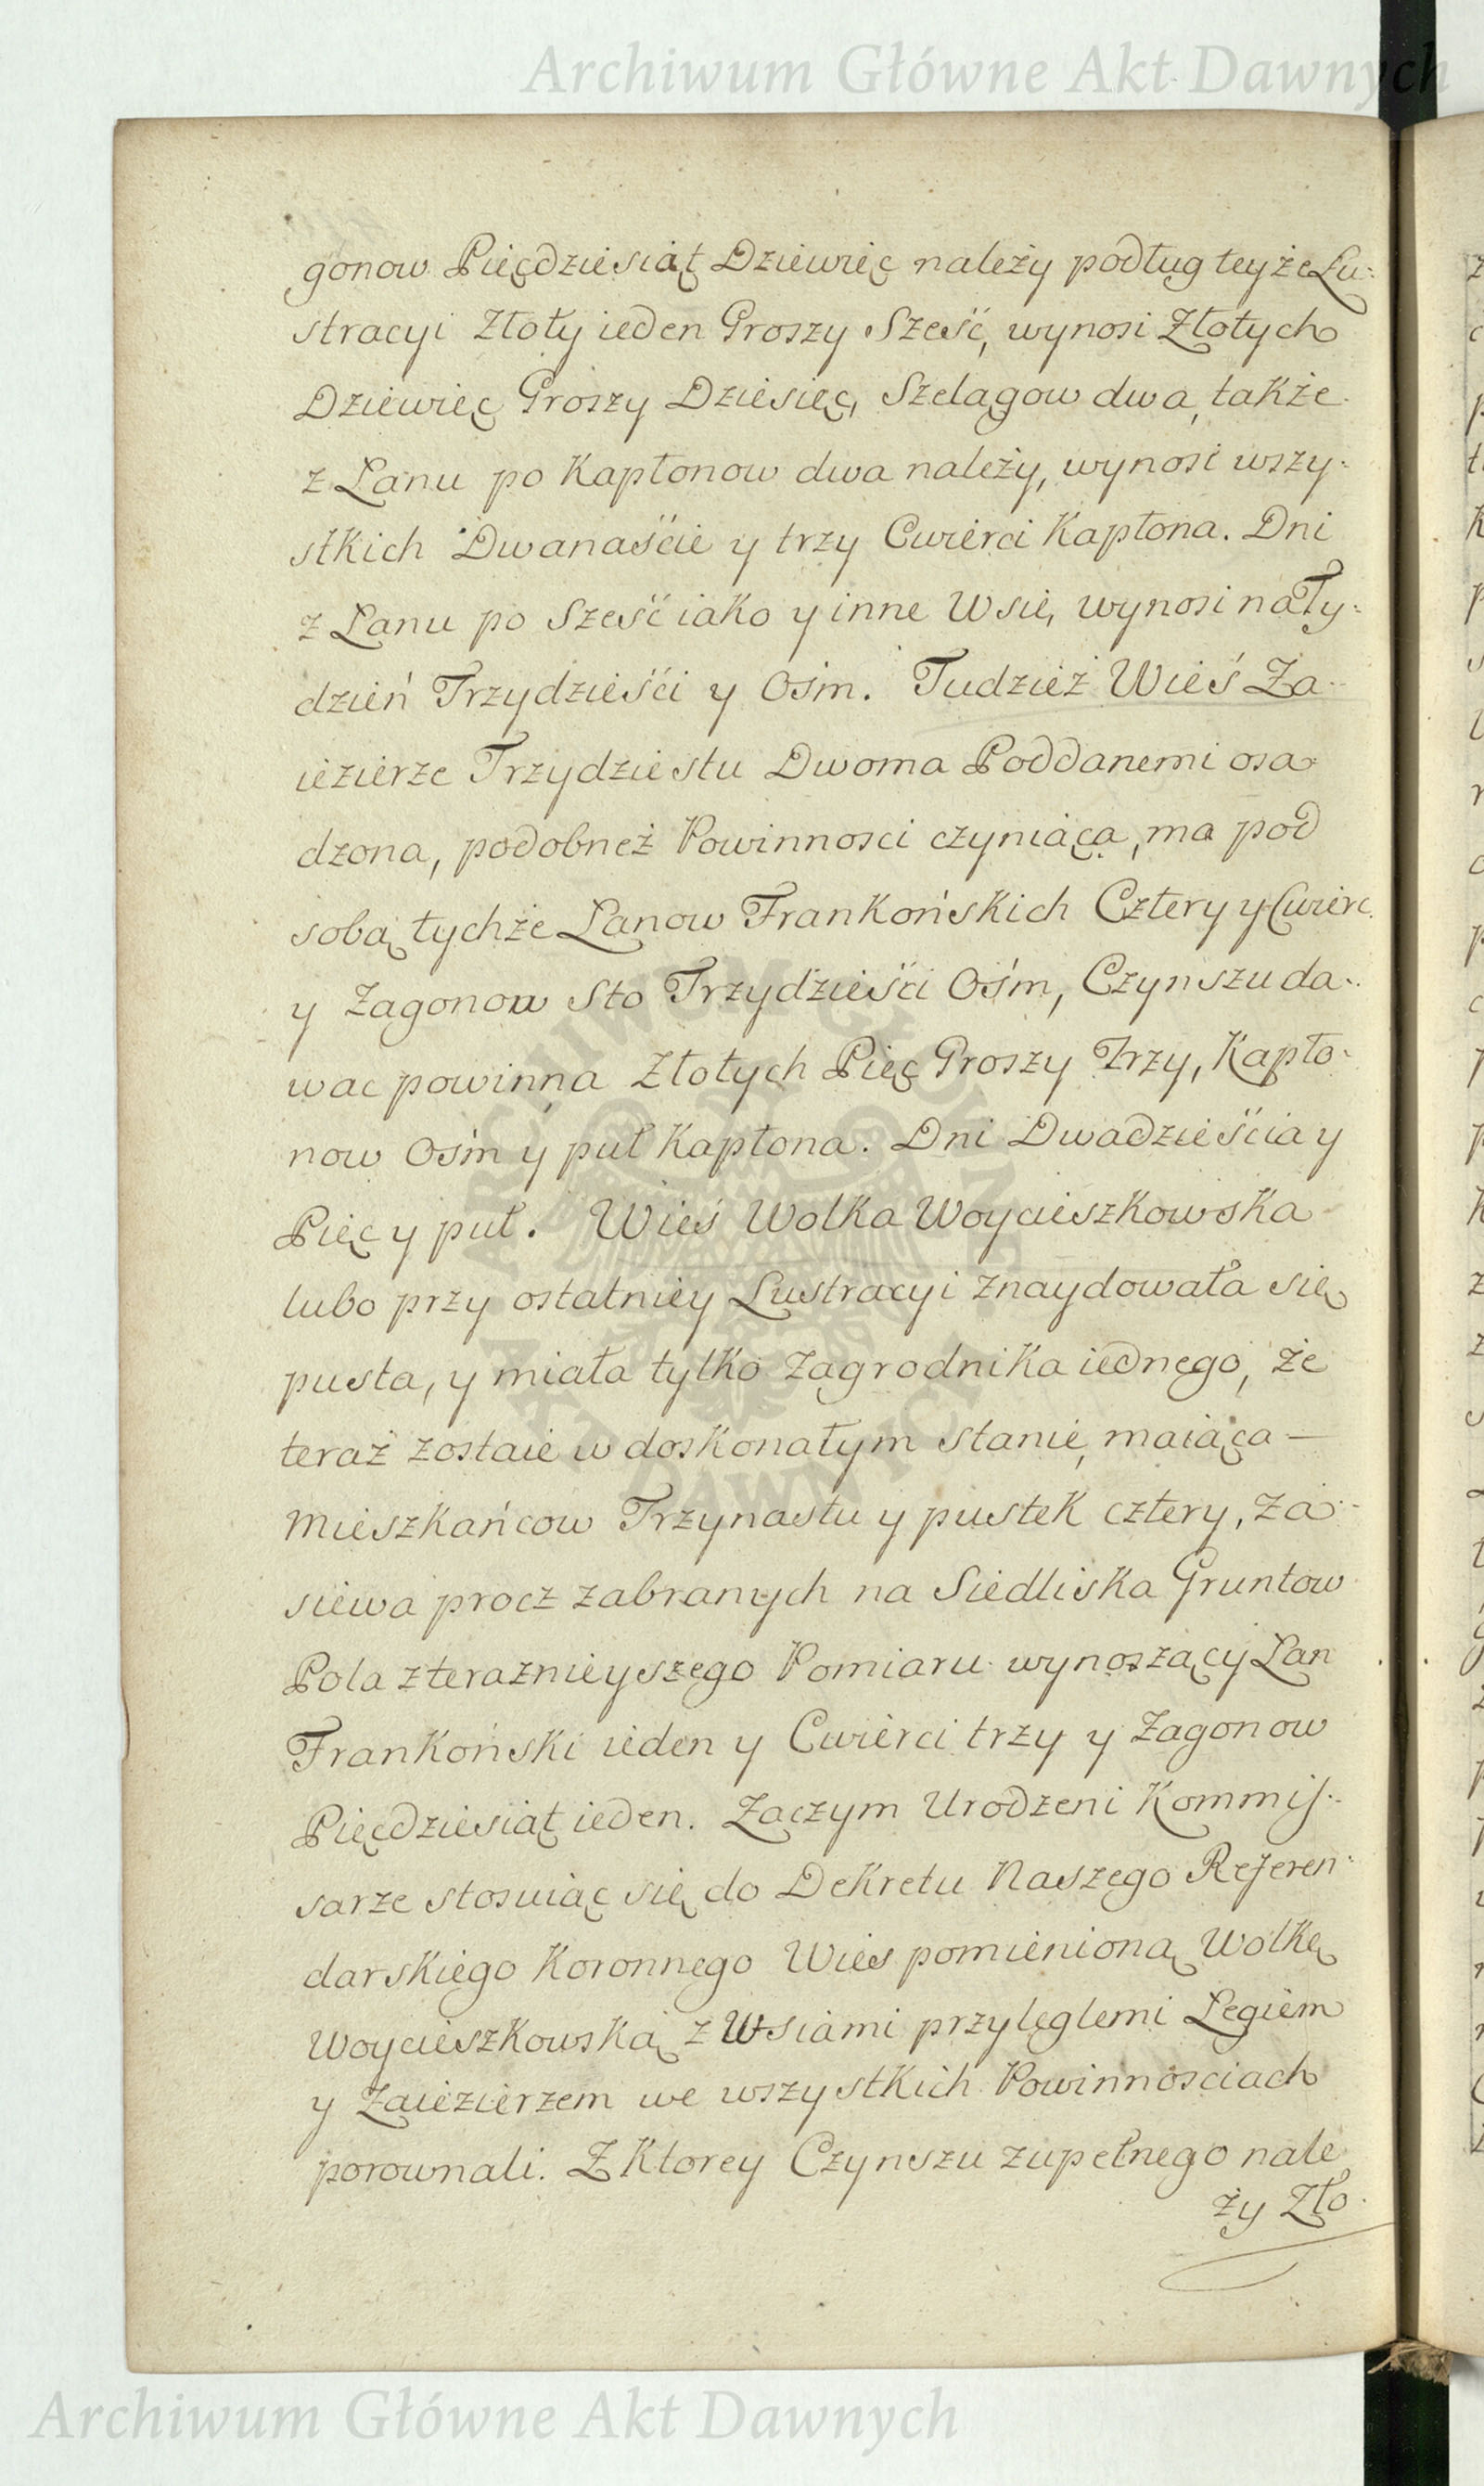 Archiwum Główne Akt Dawnych
gonow Pięcdziesiąt Dziewięc należy podług teyże Lu-
stracyi Złoty ieden Groszy Sześć, wynosi Złotych
Dziewięc Groszy Dziesięc, Szelągow dwa, także
z Łanu po Kapłonow dwa należy, wynosi wszy-
stkich Dwanaście y trzy Cwierci Kapłona. Dni
z Łanu po Sześć iako y inne Wsie, wynosi na Ty-
dzień Trzydzieści y Ośm. Tudzież Wieś Za-
iezierze Trzydziestu Dwoma Poddanemi osa-
dzona, podobneż Powinnosci czyniąca, ma pod
sobą tychże Łanow Frankońskich Cztery y Cwierc
y Zagonow Sto Trzydzieści Ośm, Czynszu da-
wac powinna Złotych Pięc Groszy Trzy, Kapło-
now Ośm y puł Kapłona. Dni Dwadzieścia y
Pięc y puł. Wieś Wolka Woycieszkowska
lubo przy ostatniey Lustracyi znaydowała się
pusta, y miała tylko Zagrodnika iednego, że
teraz zostaie w doskonałym stanie, maiąca —
Mieszkańcow Trzynastu y pustek cztery, Za-
siewa procz zabranych na Siedliska Gruntow
Pola z teraznieyszego Pomiaru wynoszący Łan
Frankoński ieden y Cwierci trzy y Zagonow
Pięcdziesiąt ieden. Zaczym Urodzeni Kommis-
sarze stosuiąc się do Dekretu Naszego Referen-
darskiego Koronnego Wies pomienioną Wolkę
Woycieszkowską z Wsiami przyległemi Łęgiem
y Zaiezierzem we wszystkich Powinnosciach
porownali. Z Ktorey Czynszu zupełnego nale
ży Zło-
ARCHIWUM GŁÓWNE AKT DAWNYCH
Archiwum Główne Akt Dawnych